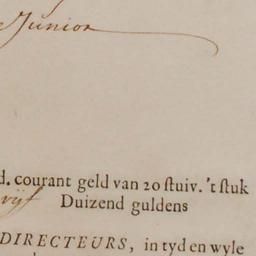 Junior
d. courant geld van 20 stuiv. 't stuk
vijf Duizend guldens
DIRECTEURS, in tyd en wyle